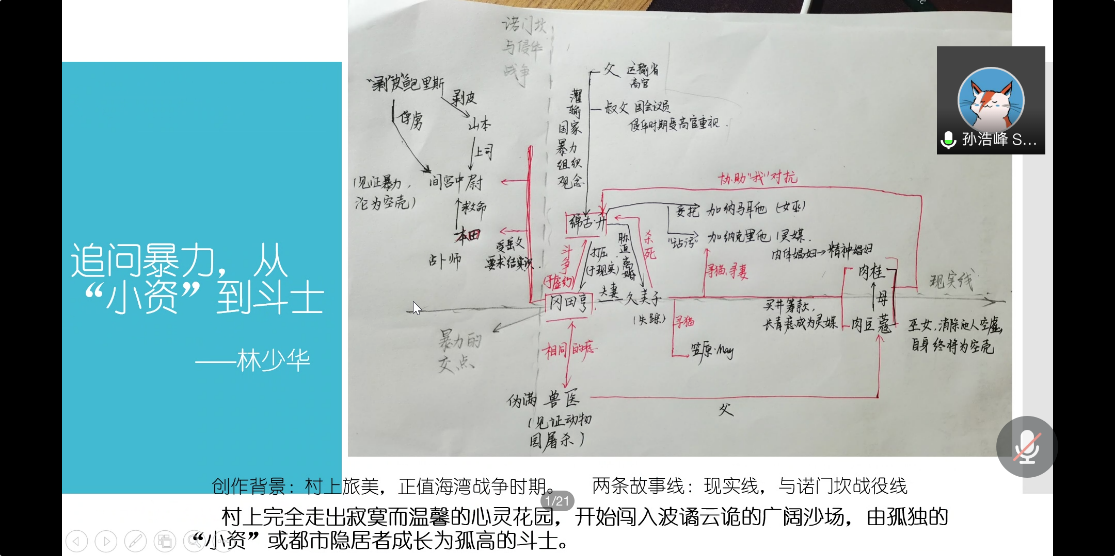 追问暴力，从
“小资”到斗士
——林少华
诺门坎
与侵华
战争
“剥皮”鲍里斯
剥皮
俘虏
山本
上司
(见证暴力，
沦为空壳)
间宫中尉
救命
本田
占卜师
受岳父
要求结识
灌输
国家
暴力
组织
观念
父 运输省
高官
叔父 国会议员
侵华时期受高官重视.
协助“我”对抗
绵谷·升
委托
加纳马耳他 (女巫)
“玷污”
加纳克里他 (灵媒.
肉体娼妇→精神娼妇
斗争
(于虚幻)
打压
(于现实)
胁迫离婚
杀死
寻猫,寻妻
冈田亨
夫妻
久美子
(失踪)
寻猫
笠原·May
买井筹款,
长青痣成为灵媒
肉桂
母
肉豆蔻
现实线
巫女,消除他人空虚
自身终将为空壳
暴力的
交点
相同的痣
伪满 兽医
(见证动物
园屠杀)
父
孙浩峰 S...
创作背景：村上旅美，正值海湾战争时期。
两条故事线：现实线，与诺门坎战役线
1/21
村上完全走出寂寞而温馨的心灵花园，开始闯入波谲云诡的广阔沙场，由孤独的
“小资”或都市隐居者成长为孤高的斗士。